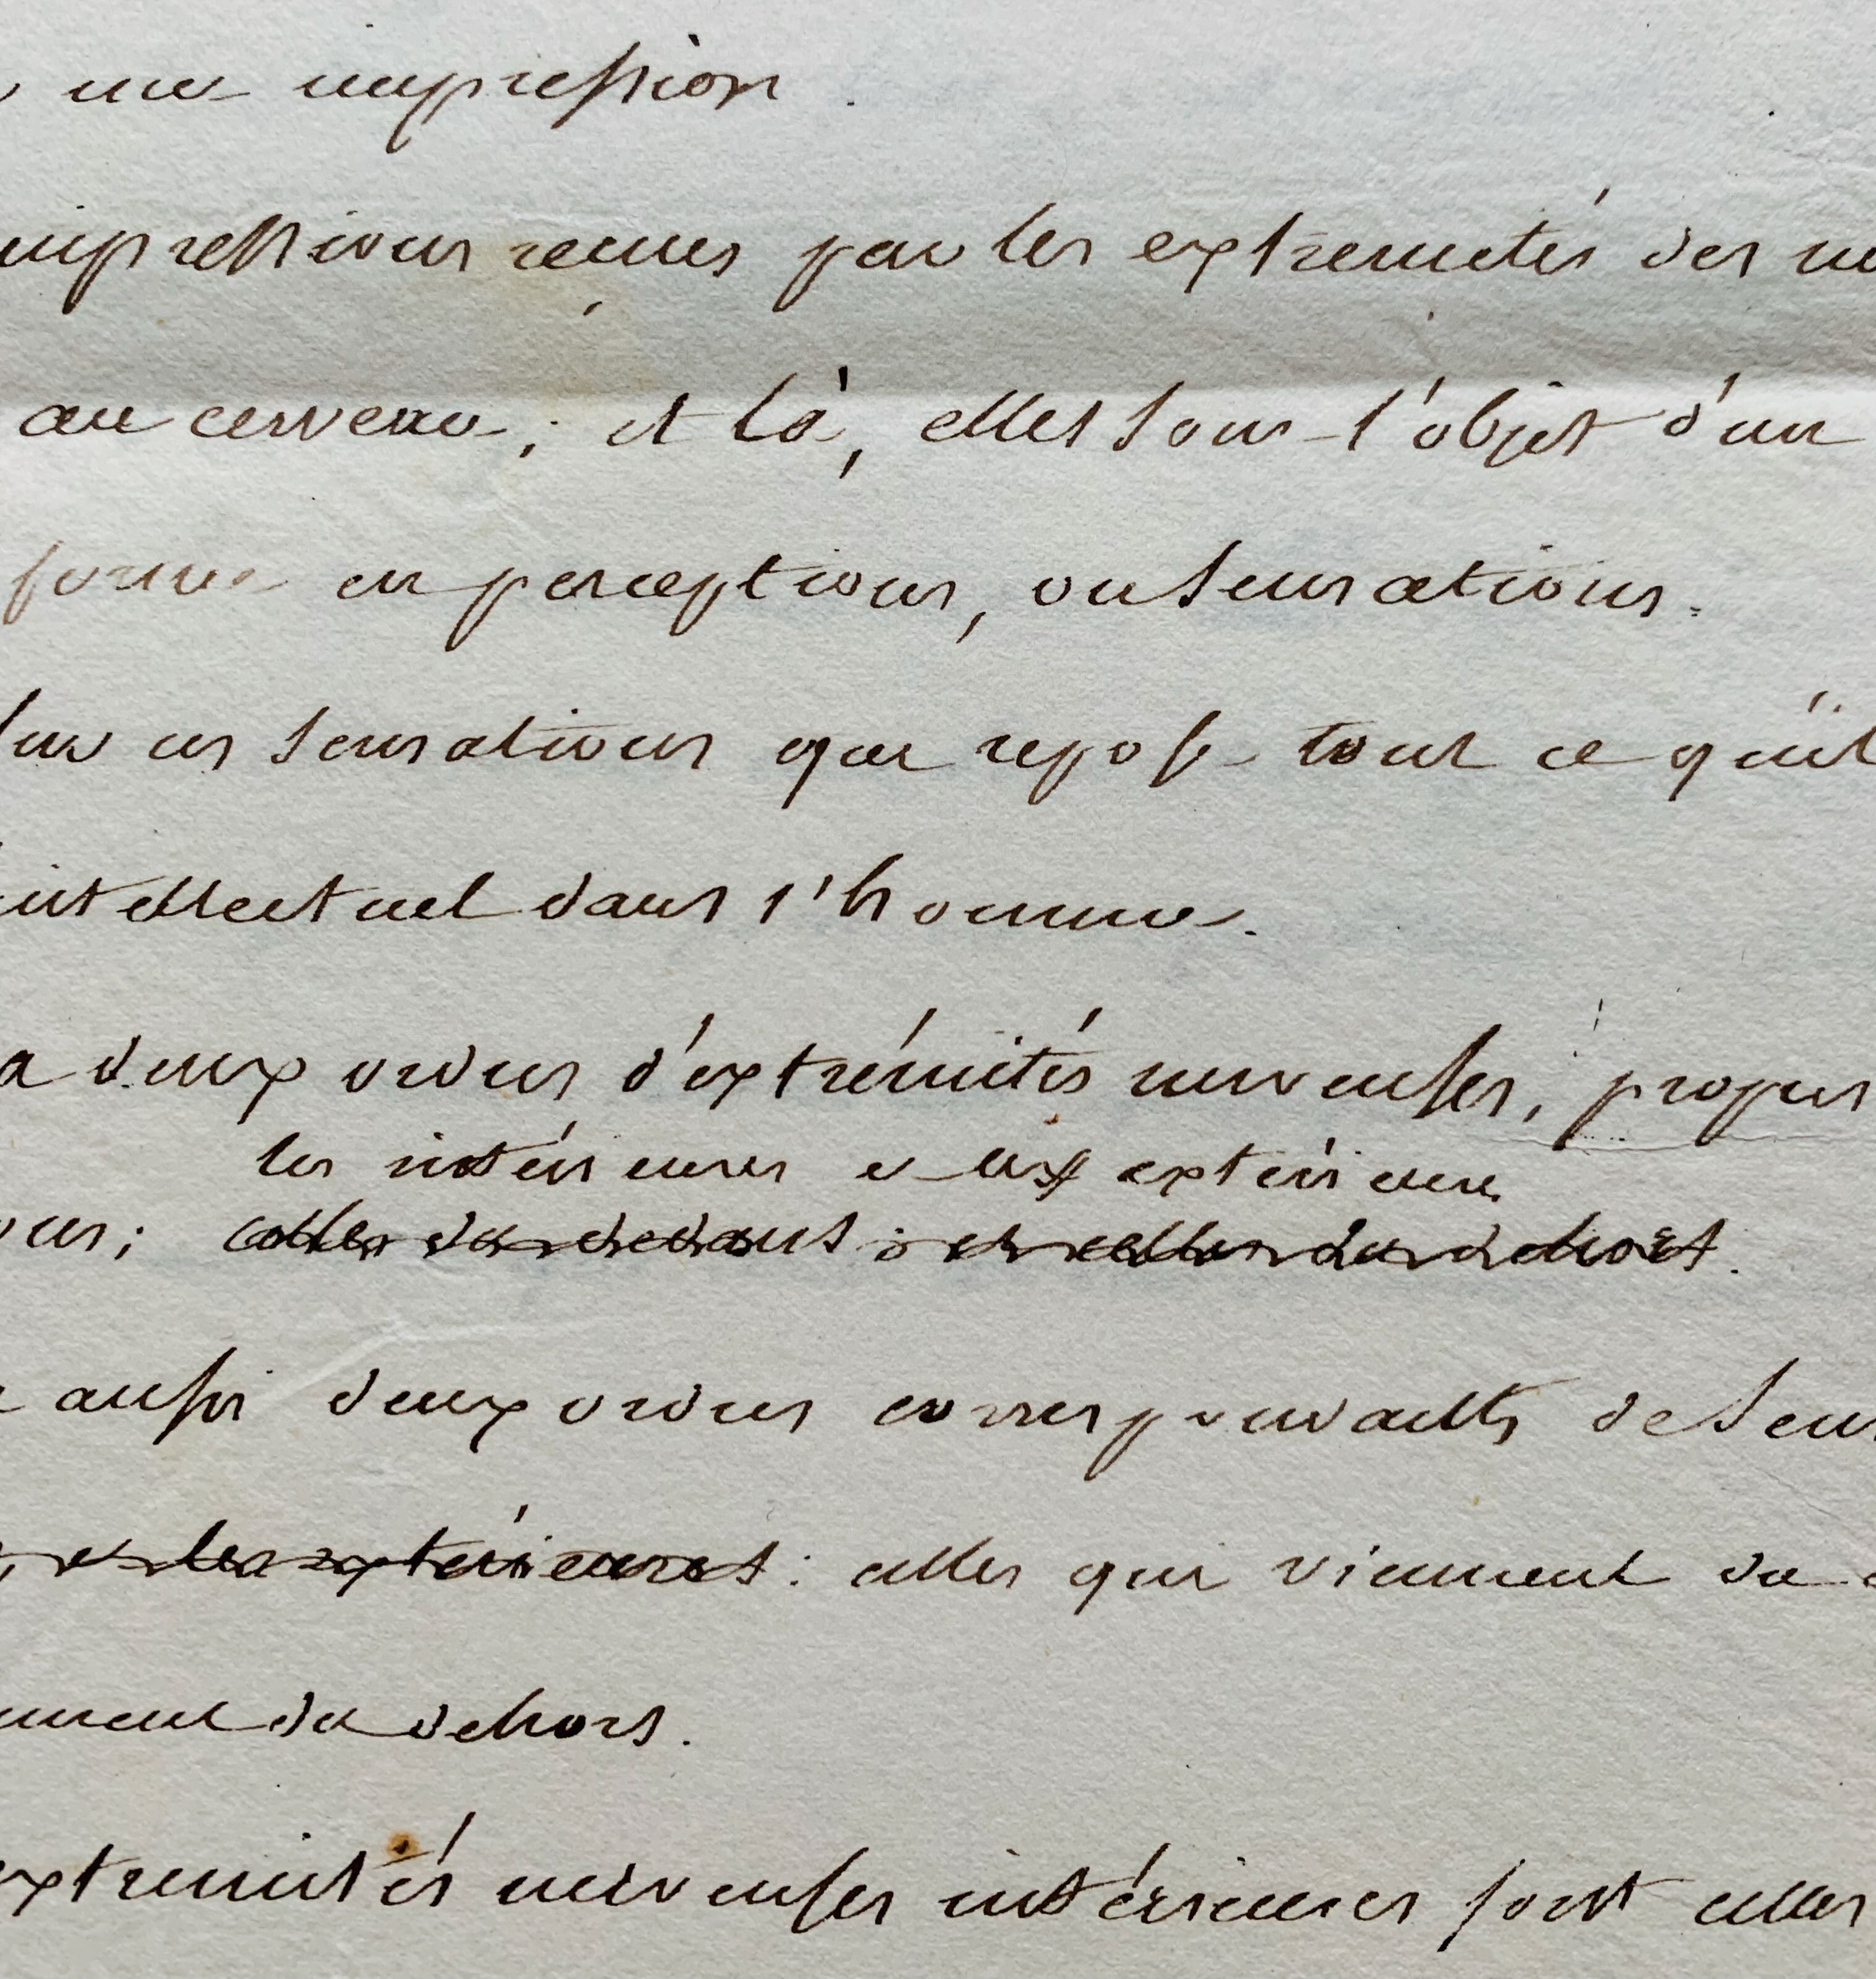 une impression.
impressions reçues par les extremités des ne
au cerveau ; et là, elles sont l'objet d'un
forme en perceptions, ou sensations.
sur ces sensations que repose tout ce qu'il
intellectuel dans l'homme.
a deux ordres d'extrémités nerveuses, propres
les intérieures et les extérieures
celles du dedans ; et celles du dehors.
aussi deux ordres correspondants de sen
et les extérieures : celles qui viennent du
nnent du dehors.
extremités nerveuses intérieures sont celles